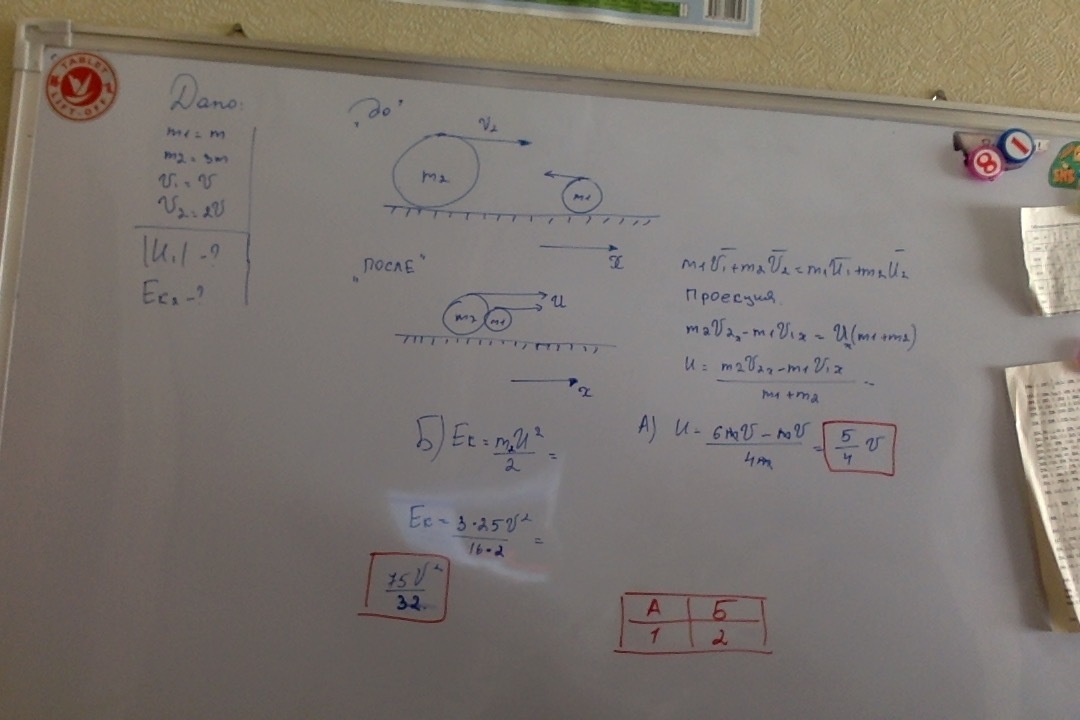 TABLET
LIFT-OFF
Дано:
m1 = m
m2 = 3m
V1 = V
V2 = 2V
|U1| - ?
Eк2 - ?
„До“
V2
m2
m1
x
„ПОСЛЕ“
U
m2
m1
x
m1V̅1 + m2V̅2 = m1U̅1 + m2U̅2
Проекция.
m2V2x - m1V1x = Ux(m1+m2)
U = (m2V2x - m1V1x)/(m1+m2) =
А) U = (6mV - mV)/(4m) = 5/4 V
Б) Eк = m2U²/2 =
Eк = 3·25V²/(16·2) =
75V²/32
А Б
1 2
1
8
SMS